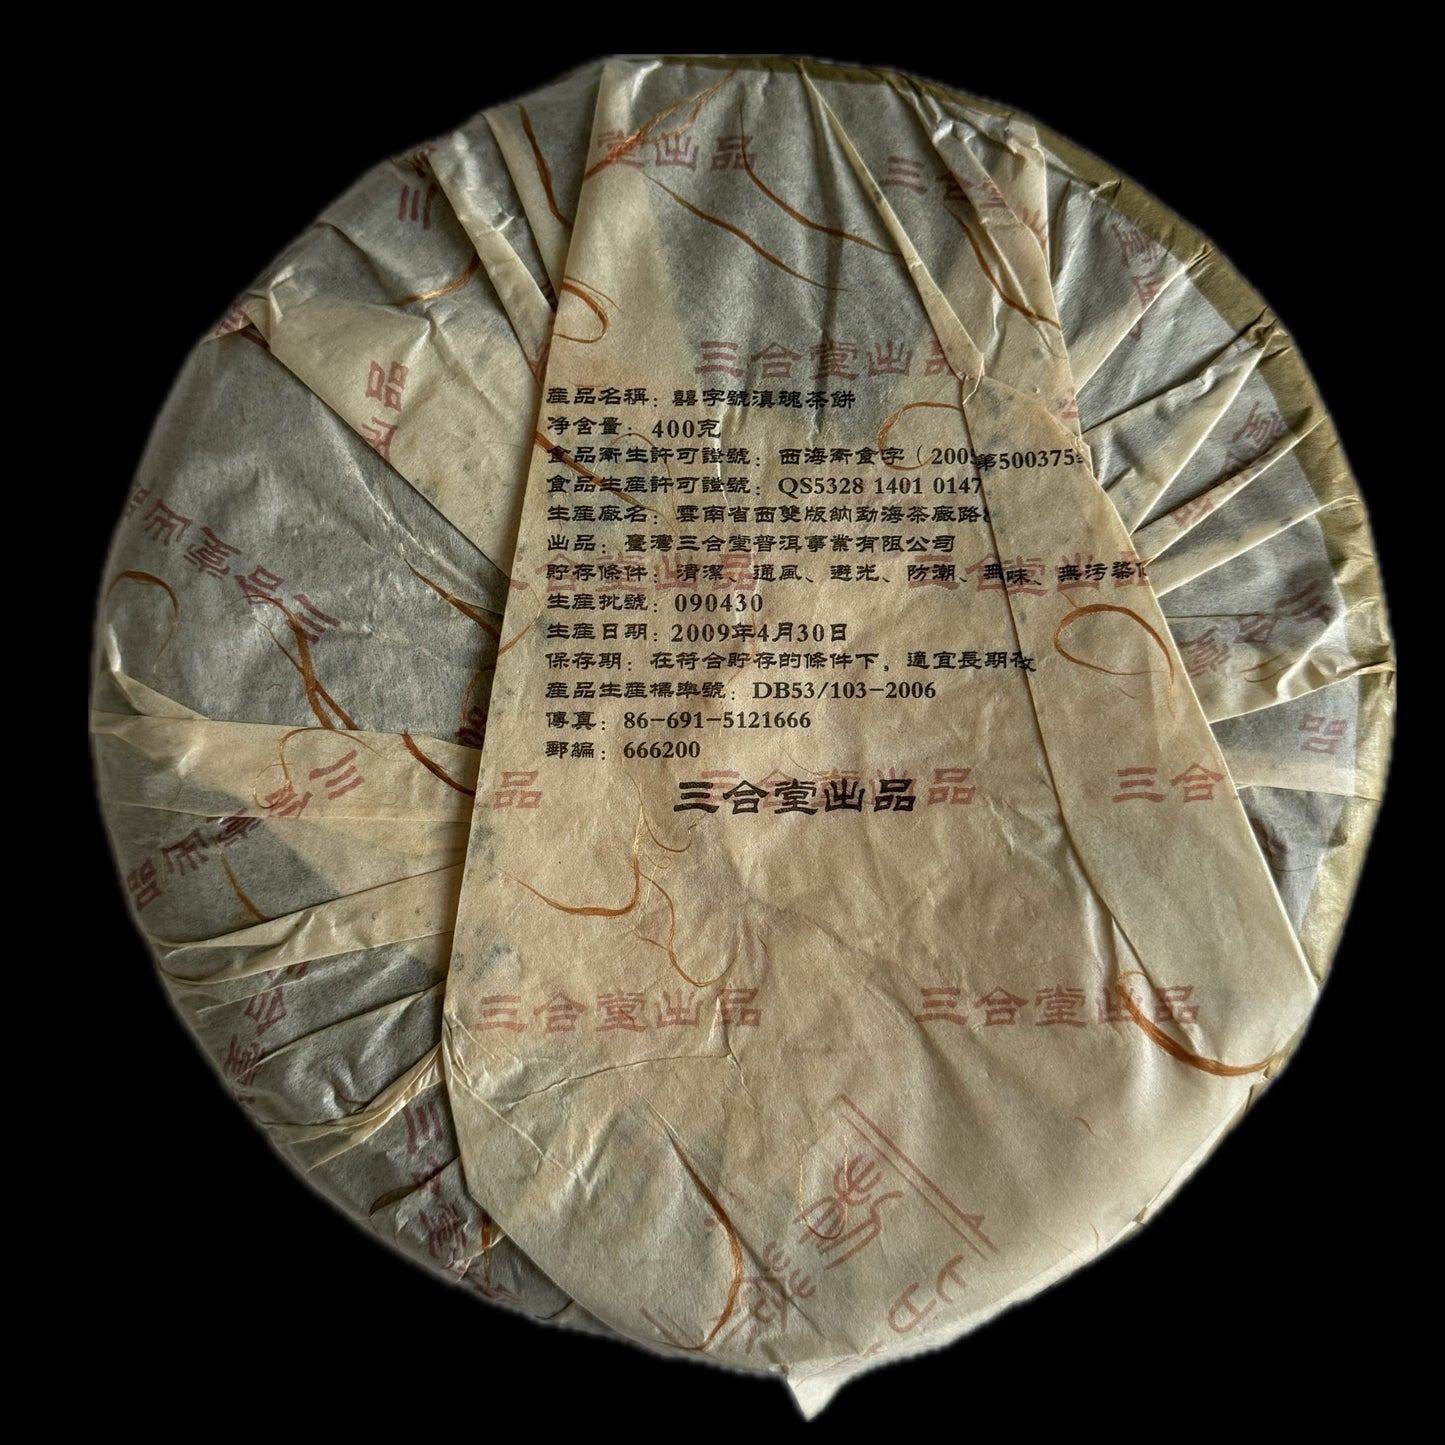 三合堂出品
產品名稱：囍字號滇瑰茶餅
净含量：400克
食品衛生許可證號：西海衛食字（200 第500375
食品生產許可證號：QS5328 1401 0147
生產廠名：雲南省西雙版納勐海茶廠路
出品：臺灣三合堂普洱事業有限公司
貯存條件：清潔、通風、避光、防潮、無味、無污染
生產批號：090430
生產日期：2009年4月30日
保存期：在符合貯存的條件下，適宜長期
產品生產標準號：DB53/103-2006
傳真：86-691-5121666
郵編：666200
三合堂出品
三合堂出品
三合堂出品